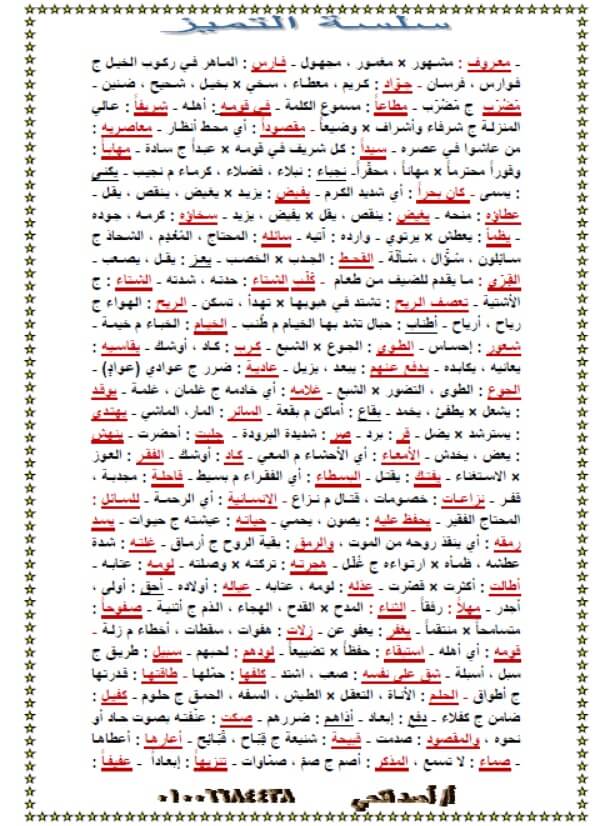 سلسلة التميز
ـ معروف : مشهور × مغمور ، مجهول ـ فارس : الماهر في ركوب الخيل ج
فوارس ، فرسان ـ جوّاد : كريم ، معطاء ، سخي × بخيل ، شحيح ، ضنين ـ
مَضْرَب ج مَضَارب ـ مطاعاً : مسموع الكلمة ـ في قومه : أهله ـ شريفاً : عالي
المنزلة ج شرفاء وأشراف × وضيعاً ـ مقصوداً : أي محط أنظار ـ معاصريه :
من عاشوا في عصره ـ سيداً : كل شريف في قومه × عبداً ج سادة ـ مهاباً :
وقوراً محترماً × مهاناً ، محقّراً ـ نجباء : نبلاء ، فضلاء ، كرماء م نجيب ـ يكنى
: يسمى ـ كان بحراً : أي شديد الكرم ـ يفيض : يزيد × يغيض ، ينقص ، يقل ـ
عطاؤه : منحه ـ يغيض : ينقص ، يقل × يفيض ، يزيد ـ سخاؤه : كرمه ، جوده
ـ يظمأ : يعطش × يرتوي ـ وارده : آتيه ـ سائله : المحتاج ، المُعْدِم ، الشحاذ ج
سائلون ، سُؤَّال ، سَأَلَة ـ القحط : الجدب × الخصب ـ يعز : يقل ، يصعب ـ
القِرَى : ما يقدم للضيف من طعام ـ كَلَب الشتاء : حدته ، شدته ـ الشتاء : ج
الأشتية ـ تعصف الريح : تشتد في هبوبها × تهدأ ، تسكن ـ الريح : الهواء ج
رياح ، أرياح ـ أطناب : حبال تشد بها الخيام م طُنب ـ الخيام : الخباء م خيمة ـ
شعور : إحساس ـ الطوى : الجوع × الشبع ـ كرب : كاد ، أوشك ـ يقاسيه :
يعانيه ، يكابده ـ يدفع عنهم : يبعد ، يزيل ـ عادية : ضرر ج عوادي (عوادٍ) ـ
الجوع : الطوى ، التضور × الشبع ـ غلامه : أي خادمه ج غلمان ، غلمة ـ يوقد
: يشعل × يطفئ ، يخمد ـ بقاع : أماكن م بقعة ـ السائر : المار، الماشي ـ يهتدي
: يسترشد × يضل ـ قر : برد ـ صر : شديدة البرودة ـ جلبت : أحضرت ـ ينهش
: يعض ، يخدش ـ الأمعاء : أي الأحشاء م المعي ـ كاد : أوشك ـ الفقر : العوز
× الاستغناء ـ يفتك : يقتل ـ البسطاء : أي الفقراء م بسيط ـ قاحلة : مجدبة ،
قفر ـ نزاعات : خصومات ، قتال م نزاع ـ الإنسانية : أي الرحمة ـ للسائل :
المحتاج الفقير ـ يحفظ عليه : يصون ، يحمي ـ حياته : عيشته ج حيوات ـ يسد
رمقه : أي ينقذ روحه من الموت ، والرمق : بقية الروح ج أرماق ـ غلته : شدة
عطشه ، ظمأه × ارتواءه ج غُلل ـ هجرته : تركته × وصلته ـ لومه : عتابه ـ
أطالت : أكثرت × قصّرت ـ عذله : لومه ، عتابه ـ عياله : أولاده ـ أحق : أولى ،
أجدر ـ مهلاً : رفقاً ـ الثناء : المدح × القدح ، الهجاء ، الذم ج أثنية ـ صفوحاً :
متسامحاً × منتقماً ـ يغفر : يعفو عن ـ زلات : هفوات ، سقطات ، أخطاء م زلة ـ
قومه : أي أهله ـ استبقاء : حفظاً × تضييعاً ـ لودهم : لحبهم ـ سبيل : طريق ج
سبل ، أسبلة ـ شق على نفسه : صعب ، اشتد ـ كلفها : حمّلها ـ طاقتها : قدرتها
ج أطواق ـ الحلم : الأناة ، التعقل × الطيش ، السفه ، الحمق ج حلوم ـ كفيل :
ضامن ج كفلاء ـ دفع : إبعاد ـ أذاهم : ضررهم ـ صكت : عنّفته بصوت حاد أو
نحوه ، والمقصود : صدمت ـ قبيحة : شنيعة ج قِبَاح ، قَبَائِح ـ أعارها : أعطاها
ـ صماء : لا تسمع ، المذكر : أصم ج صمّ ، صمّاوات ـ تنزيهاً : إبعاداً ـ عفيفاً :
أ/ أحمد فتحي ٠١٠٠٦٦٨٤٤٣٨